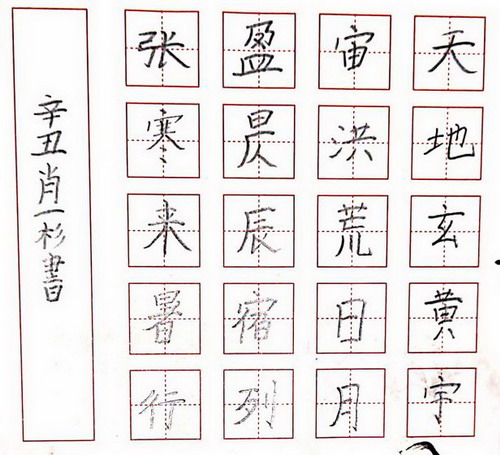 天地玄黄宇
宙洪荒日月
盈昃辰宿列
张寒来暑行
辛丑肖一杉書